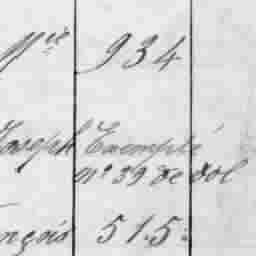 Mie 934
Joseph Exempté
n° 39 de dol
nçois 515